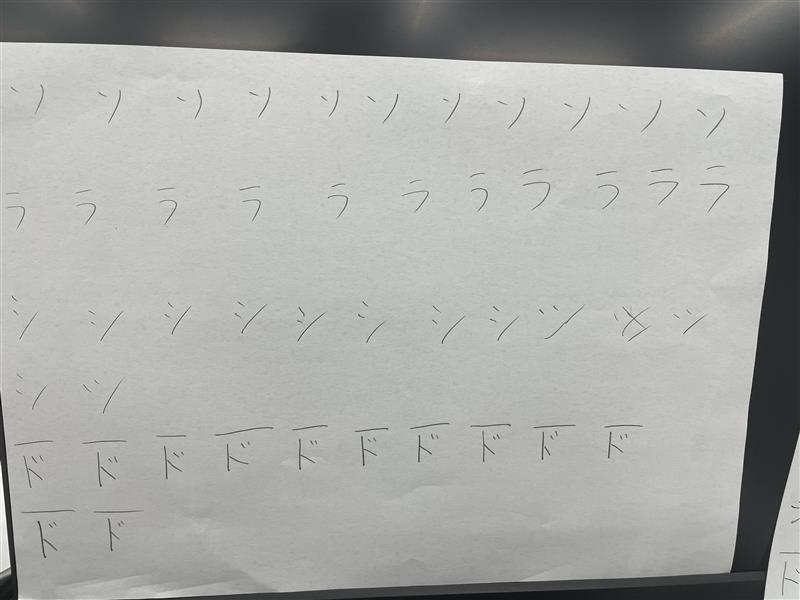 ソ ソ ソ ソ ソ ソ ソ ソ ソ ソ ソ
ラ ラ ラ ラ ラ ラ ラ ラ ラ ラ ラ
シ シ シ シ シ シ シ シ ツ ツ
シ ツ
ド ド ド ド ド ド ド ド ド ド
ド ド